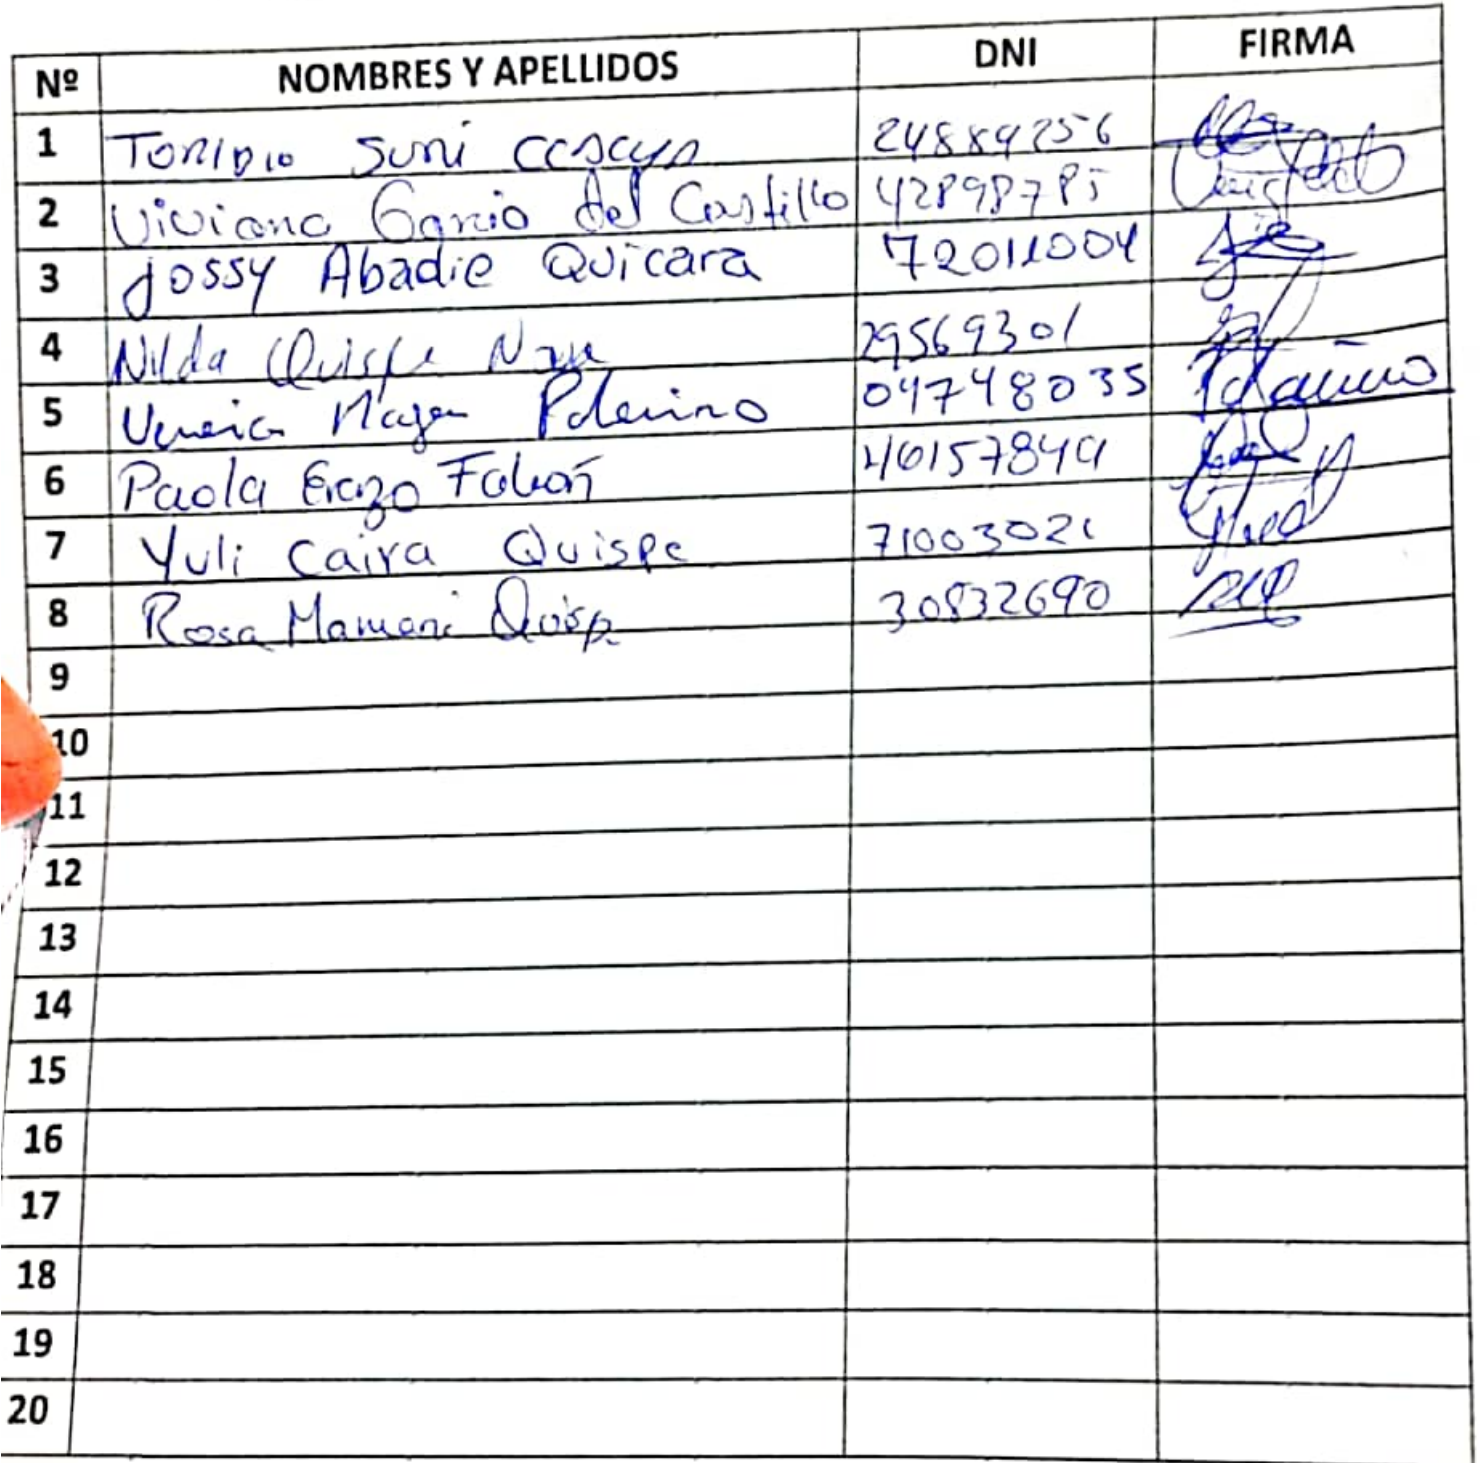 Nº NOMBRES Y APELLIDOS DNI FIRMA
1 Toribio Suni Ccscya 24889256
2 Viviana Garcia del Castillo 42898785
3 Jossy Abadie Quicara 72011004
4 Nilda Quispe 29569301
5 Palomino 047748035
6 Paola Erazo Fabián 40157849
7 Yuli Caira Quispe 71003021
8 Rosa Mamani Quispe 30832690
9
10
11
12
13
14
15
16
17
18
19
20